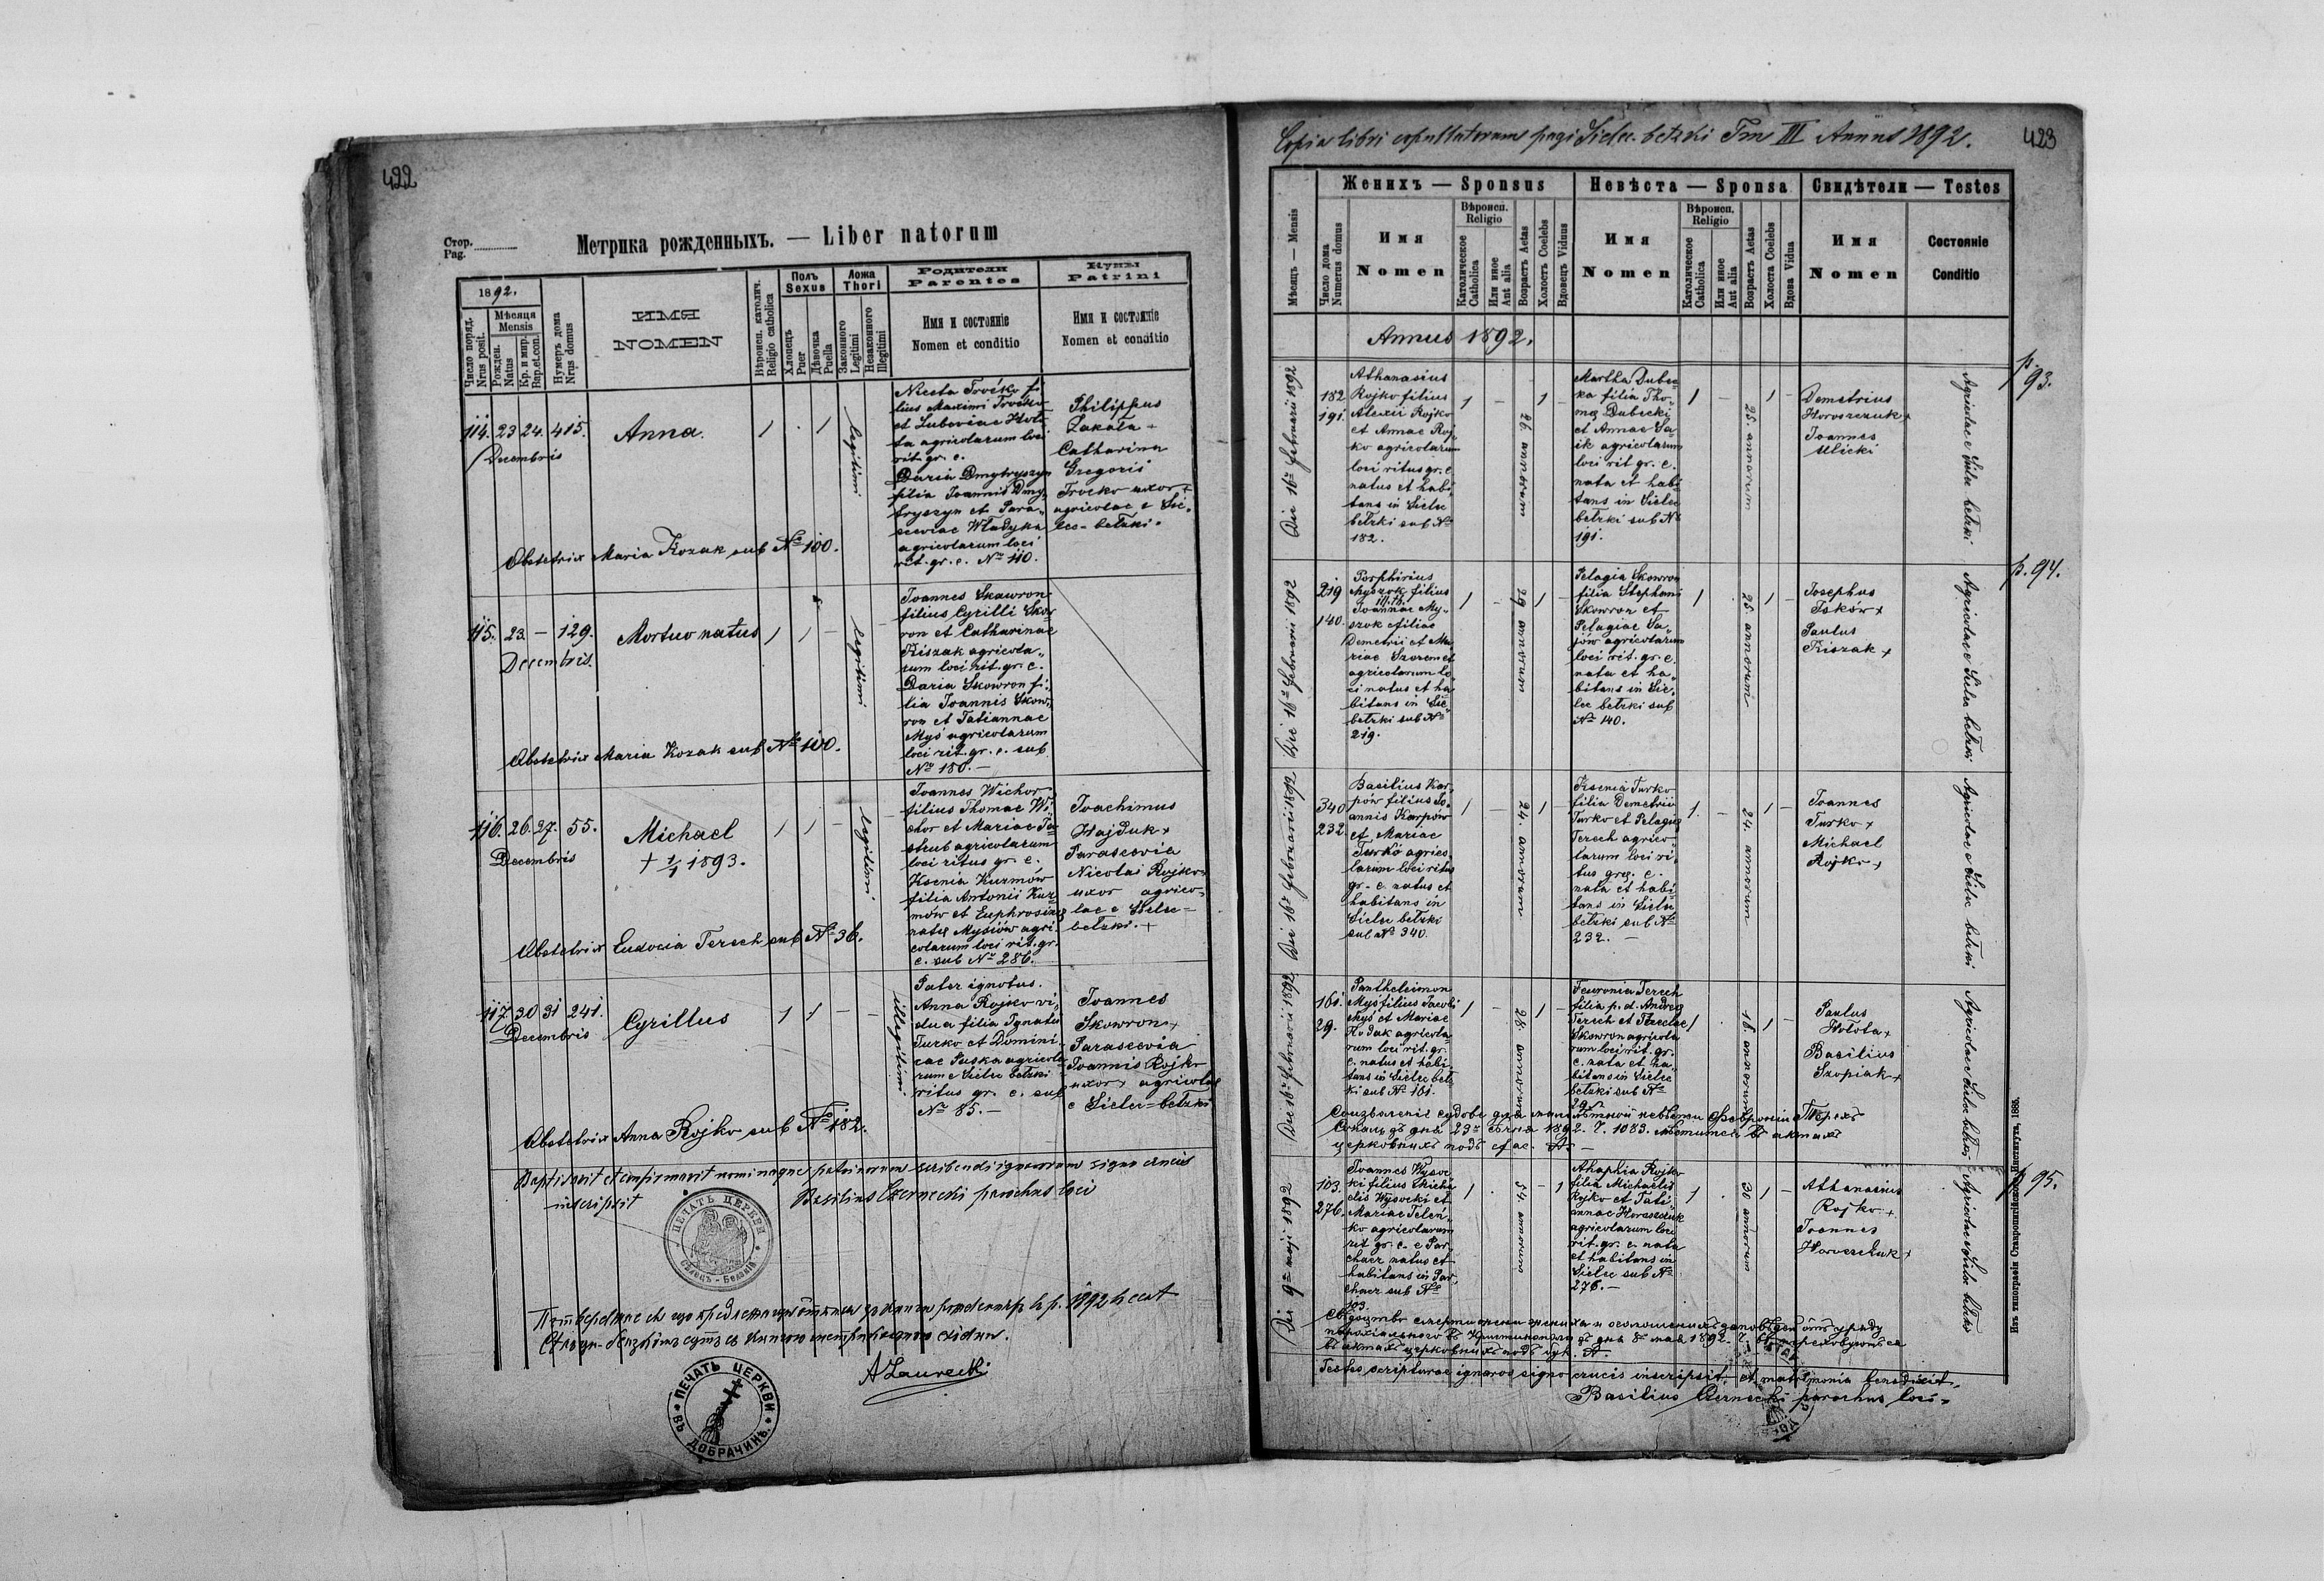 422
Стор.
Pag.
Метрика рожденныхъ. — Liber natorum
1892.
Число поряд.
Nrus posit.
Мѣсяця
Mensis
Рожден.
Natus
Кр. и мир.
Bap. et con.
Нумеръ дома
Nrus domus
ИМЯ
NOMEN
Вѣроисп. католич.
Religio catholica
Полъ
Sexus
Хлопецъ
Puer
Дѣвочка
Puella
Ложа
Thori
Законного
Legitimi
Незаконного
Illegitimi
Родители
Parentes
Имя и состоянiе
Nomen et conditio
Кумы
Patrini
Имя и состоянiе
Nomen et conditio
114. 23 24. 415. Anna. 1 . 1 legitimi
Decembris
Niceta Troćko fi-
lius Maximi Troćko
et Eudociae Holo-
ta agricolarum loci
rit. gr. c.
Daria Dmytryszyn
filia Joannis Dmy-
tryszyn et Para-
sceviae Władyka
agricolarum loci
rit. gr. c. No 110.
Philippus
Zakala +
Catharina
Gregorii
Trocko uxor +
agricolae e Sie-
lec-betzki.
Obstetrix Maria Kozak sub No 100.
115. 23. — 129. Mortuo natus 1 1 — legitimi
Decembris.
Joannes Skowron
filius Cyrilli Skow-
ron et Catharinae
Kiszak agricola-
rum loci rit. gr. c.
Daria Skowron fi-
lia Joannis Skow-
ron et Tatiannae
Myś agricolarum
loci rit. gr. c. sub
No 180. —
Obstetrix Maria Kozak sub No 100.
116. 26. 27. 55. Michael 1 1 — legitimi
Decembris
+ 1/1 1893.
Joannes Wichor
filius Thomae Wi-
chor et Mariae Ja-
strub agricolarum
loci ritus gr. c.
Ksenia Kuzmów
filia Antonii Kuz-
mów et Euphrosinae
natae Mysiów agri-
colarum loci rit. gr.
c. sub No 286.
Joachimus
Hajduk +
Parascevia
Nicolai Rojko
uxor agrico-
lae e Sielec-
betzki. +
Obstetrix Eudocia Terech sub No 36.
117. 30 31 241. Cyrillus 1 1 — — illegitimi
Decembris
Pater ignotus.
Anna Rojko vi-
dua filia Ignatii
Turko et Domini-
cae Puska agricola-
rum e Sielec betzki
ritus gr. c. sub
No 85. —
Joannes
Skowron +
Parascevia
Joannis Rojko
uxor + agricolae
e Sielec-betzki
Obstetrix Anna Rojko sub No 182.
Baptisavit et confirmavit nominaque patrinorum scribendi ignarorum signo crucis
inscripsit Basilius Czernecki parochus loci
ПЕЧАТЬ ЦЕРКВИ
Сѣлецъ - Бельзкiй
1892
A Lawrecki
ПЕЧАТЬ ЦЕРКВИ
ВЪ ДОБРАЧИНѢ
Copia libri copullatorum pagi Sielec-betzki Tm III Annus 1892. 423
Мѣсяць — Mensis
Число дома
Numerus domus
Женихъ — Sponsus
Имя
Nomen
Вѣроисп.
Religio
Католическое
Catholica
Или иное
Aut alia
Возрасть Aetas
Холость Coelebs
Вдовецъ Viduus
Невѣста — Sponsa
Имя
Nomen
Вѣроисп.
Religio
Католическое
Catholica
Или иное
Aut alia
Возрасть Aetas
Холоста Coelebs
Вдова Vidua
Свидѣтели — Testes
Имя
Nomen
Состоянiе
Conditio
Annus 1892.
Die 16a Februarii 1892
182
191.
Athanasius
Rojko filius
Alexii Rojko
et Annae Roj-
ko agricolarum
loci ritus gr. c.
natus et habi-
tans in Sielec
betzki sub No
182.
1 — 26. annorum 1 —
Martha Dubec-
ka filia Tho-
mae Dubecki
et Annae Sa-
ik agricolarum
loci rit gr. c.
nata et habi-
tans in Sielec
betzki sub No
191.
1 — 25. annorum 1 —
Demetrius
Horoszczuk +
Joannes
Ulicki
Agricolae e Sielec betzki
p. 93.
Die 16a Februarii 1892
219
140.
Porphirius
Myszok filius
illgt.
Joannae My-
szok filiae
Demetrii et Ma-
riae Szeremet
agricolarum lo-
ci natus et ha-
bitans in Sielec
betzki sub No
219.
1 — 29 annorum 1 —
Pelagia Skowron
filia Stephani
Skowron et
Pelagiae Sa-
jów agricolarum
loci rit. gr. c.
nata et ha-
bitans in Sie-
lec betzki sub
No 140.
1 . 25. annorum 1 —
Josephus
Iśków +
Paulus
Kiszak +
Agricolae e Sielec betzki
p. 94.
Die 18a Februarii 1892
340
232.
Basilius Kar-
pów filius Jo-
annis Karpów
et Mariae
Turko agrico-
larum loci ritus
gr. c. natus et
habitans in
Sielec betzki
sub No 340.
1 — 24. annorum 1 —
Ksenia Turko
filia Demetrii
Turko et Pelagiae
Terech agrico-
larum loci ri-
tus gr. c.
nata et habi-
tans in Sielec
betzki sub No
232. —
1. — 24. annorum 1 —
Joannes
Turko +
Michael
Rojko +
Agricolae e Sielec betzki
Die 18a Februarii 1892
161.
29.
Pantheleimon
Myś filius Jacobi
Myś et Mariae
Hodak agricola-
rum loci rit. gr.
c. natus et habi-
tans in Sielec betz-
ki sub No 161.
1 — 28. annorum 1 —
Fewronia Terech
filia p. d. Andreae
Terech et Theclae
Skowron agricola-
rum loci rit. gr.
c. nata et ha-
bitans in Sielec
betzki sub No
29.
1 . 18. annorum 1 —
Paulus
Hołota +
Basilius
Szopiak +
Agricolae e Sielec betzki
Die 9a maji 1892
103.
276.
Joannes Wysoc-
ki filius Micha-
elis Wysocki et
Mariae Telen-
ko agricolarum
rit gr. c. e Par-
chacz natus et
habitans in Par-
chacz sub No
103.
1 . 54 annorum — 1
Ahaphia Rojko
filia Michaelis
Rojko et Tati-
annae Horoszczuk
agricolarum loci
rit. gr. c. nata
et habitans in
Sielec sub No
276. —
1 . 30 annorum 1 —
Athanasius
Rojko +
Joannes
Horoszczuk +
p. 95.
Testes scripturae ignaros signo crucis inscripsit, et matrimonia benedixit.
Basilius Czernecki parochus loci.
Изъ типографiи Ставропигiйского Института, 1885.